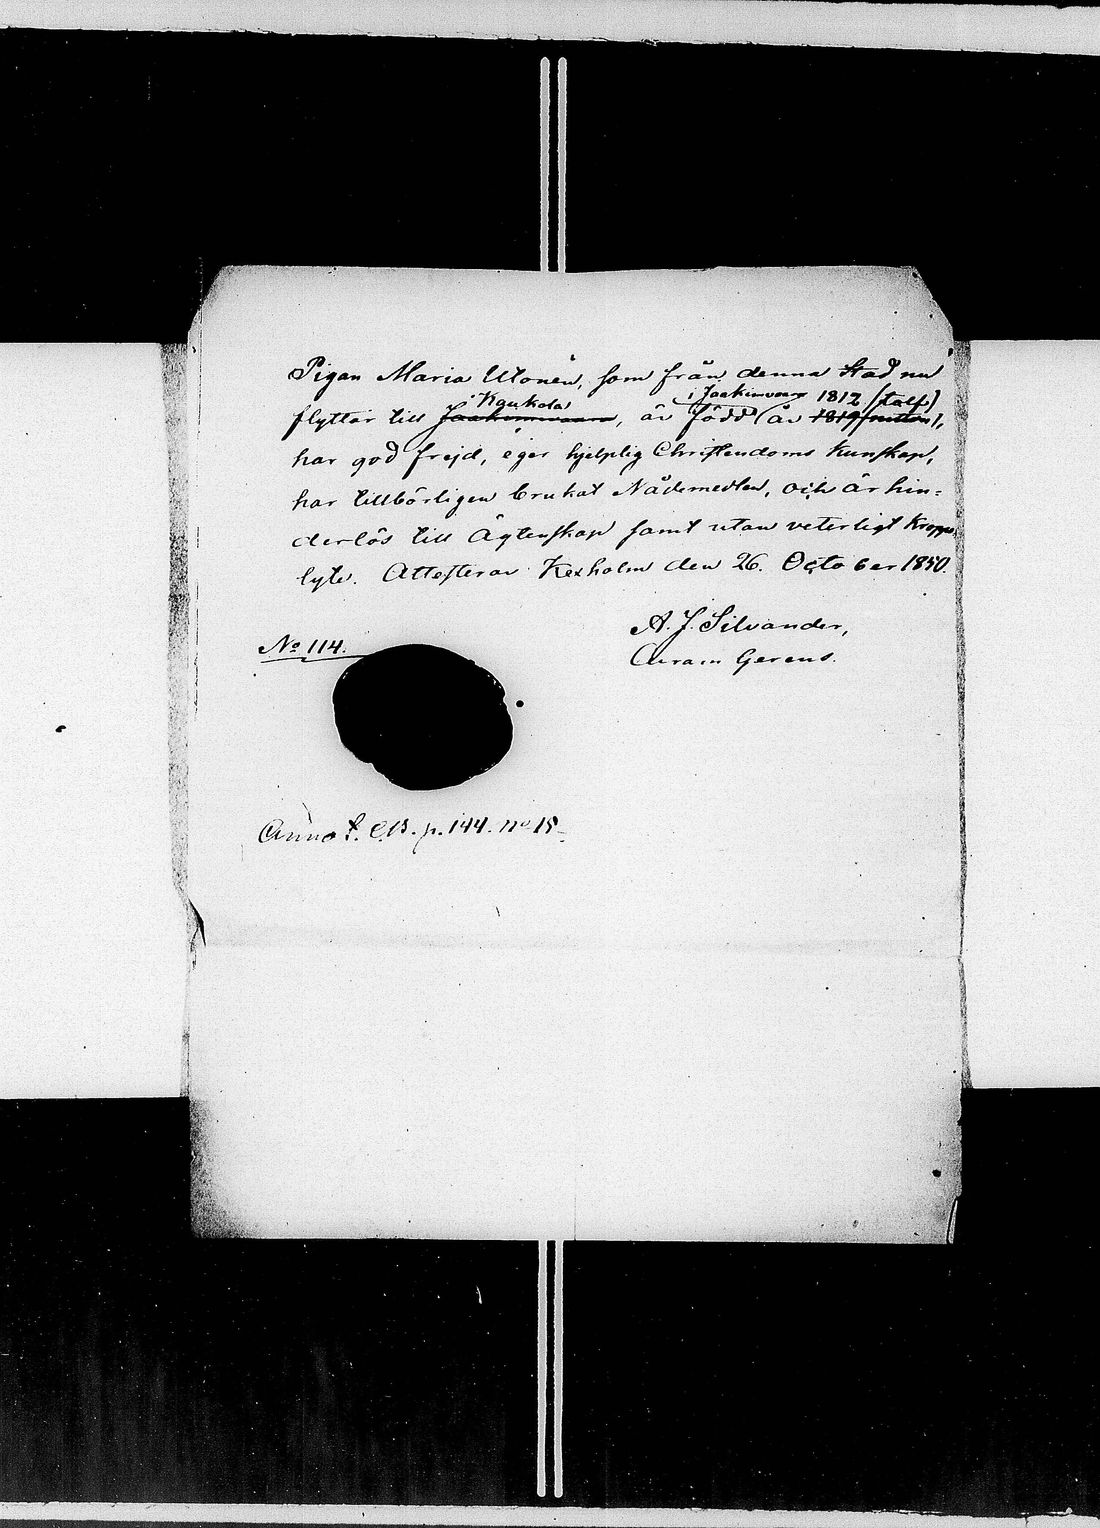 Pigan Maria Utonen, som från denna Stad nu
flyttar till Kaukola, är född i Jaakimvara år 1812 (tolf),
har god frejd, eger hjelplig Christendoms Kunskap,
har tillbörligen brukat Nådemedlen, och är hin=
derlös till Ägtenskap samt utan veterligt Kropps
lyte. Attesterar Kexholm den 26. October 1850.
A. J. Silvander,
Curam Gerens.
No 114.
Annot. C.B. p. 144. no 15.